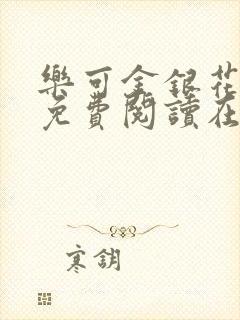 樂可金銀花
免費閱讀在
寒鈅